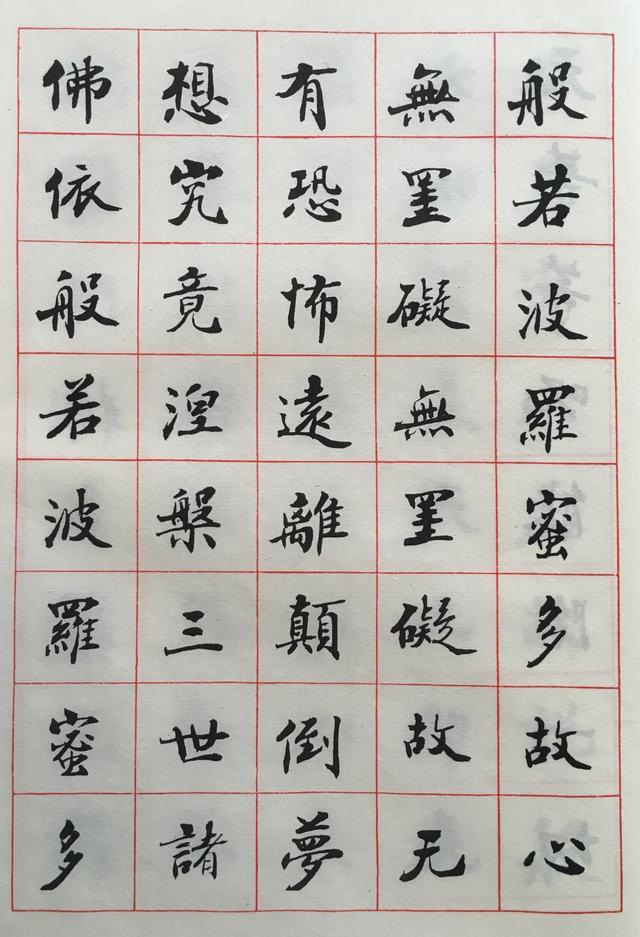 般若波羅蜜多故心
無罣礙無罣礙故无
有恐怖遠離顛倒夢
想究竟涅槃三世諸
佛依般若波羅蜜多